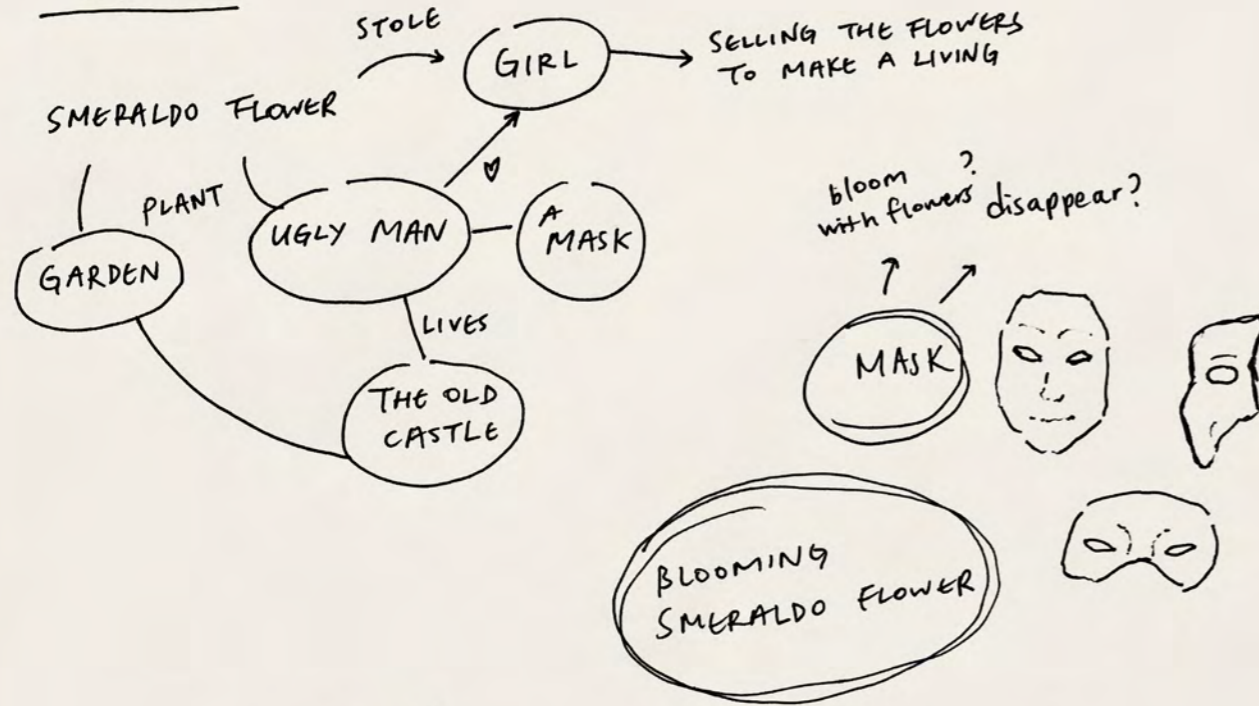 STOLE
GIRL
SELLING THE FLOWERS
TO MAKE A LIVING
SMERALDO FLOWER
PLANT
GARDEN
UGLY MAN
A
MASK
LIVES
THE OLD
CASTLE
bloom
with flowers?
disappear?
MASK
BLOOMING
SMERALDO FLOWER